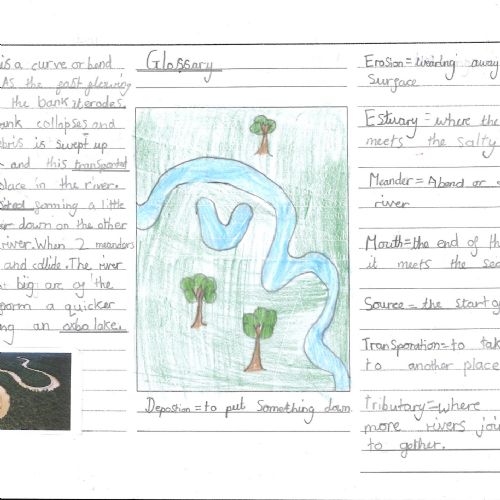 is a curve or bend
As the fast flowing
the bank it erodes.
bank collapses and
debris is swept up
and this transported
place in the river.
forming a little
down on the other
river. When 2 meanders
and collide. The river
big arc of the
form a quicker
ing an oxbo lake.
Glossary
Depostion = to put Something down
Erosion = wearing away
Surface
Estuary = where the
meets the salty
Meander = A bend or
river
Mouth = the end of th
it meets the sea
Source = the start of
Transporation = to tak
to another place
Tributary = where
more rivers joi
to gether.